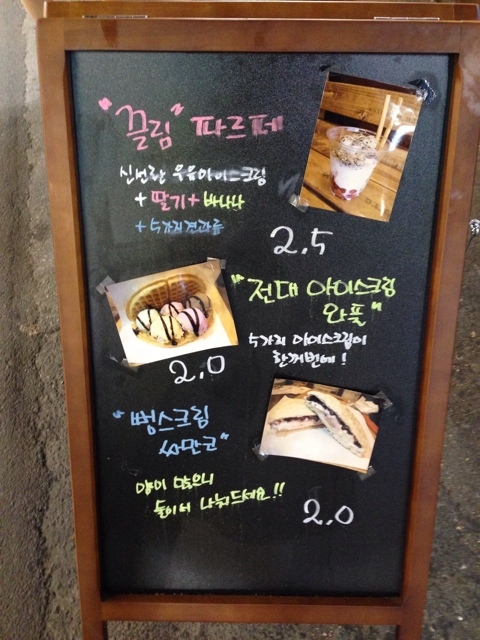 "끌림" 파르페
신선한 우유아이스크림
+ 딸기 + 바나나
+ 5가지견과류
2.5
"전대 아이스크림
와플"
5가지 아이스크림이
한꺼번에!
2.0
"뻥스크림
싸만코"
양이 많으니
둘이서 나눠드세요!!
2.0